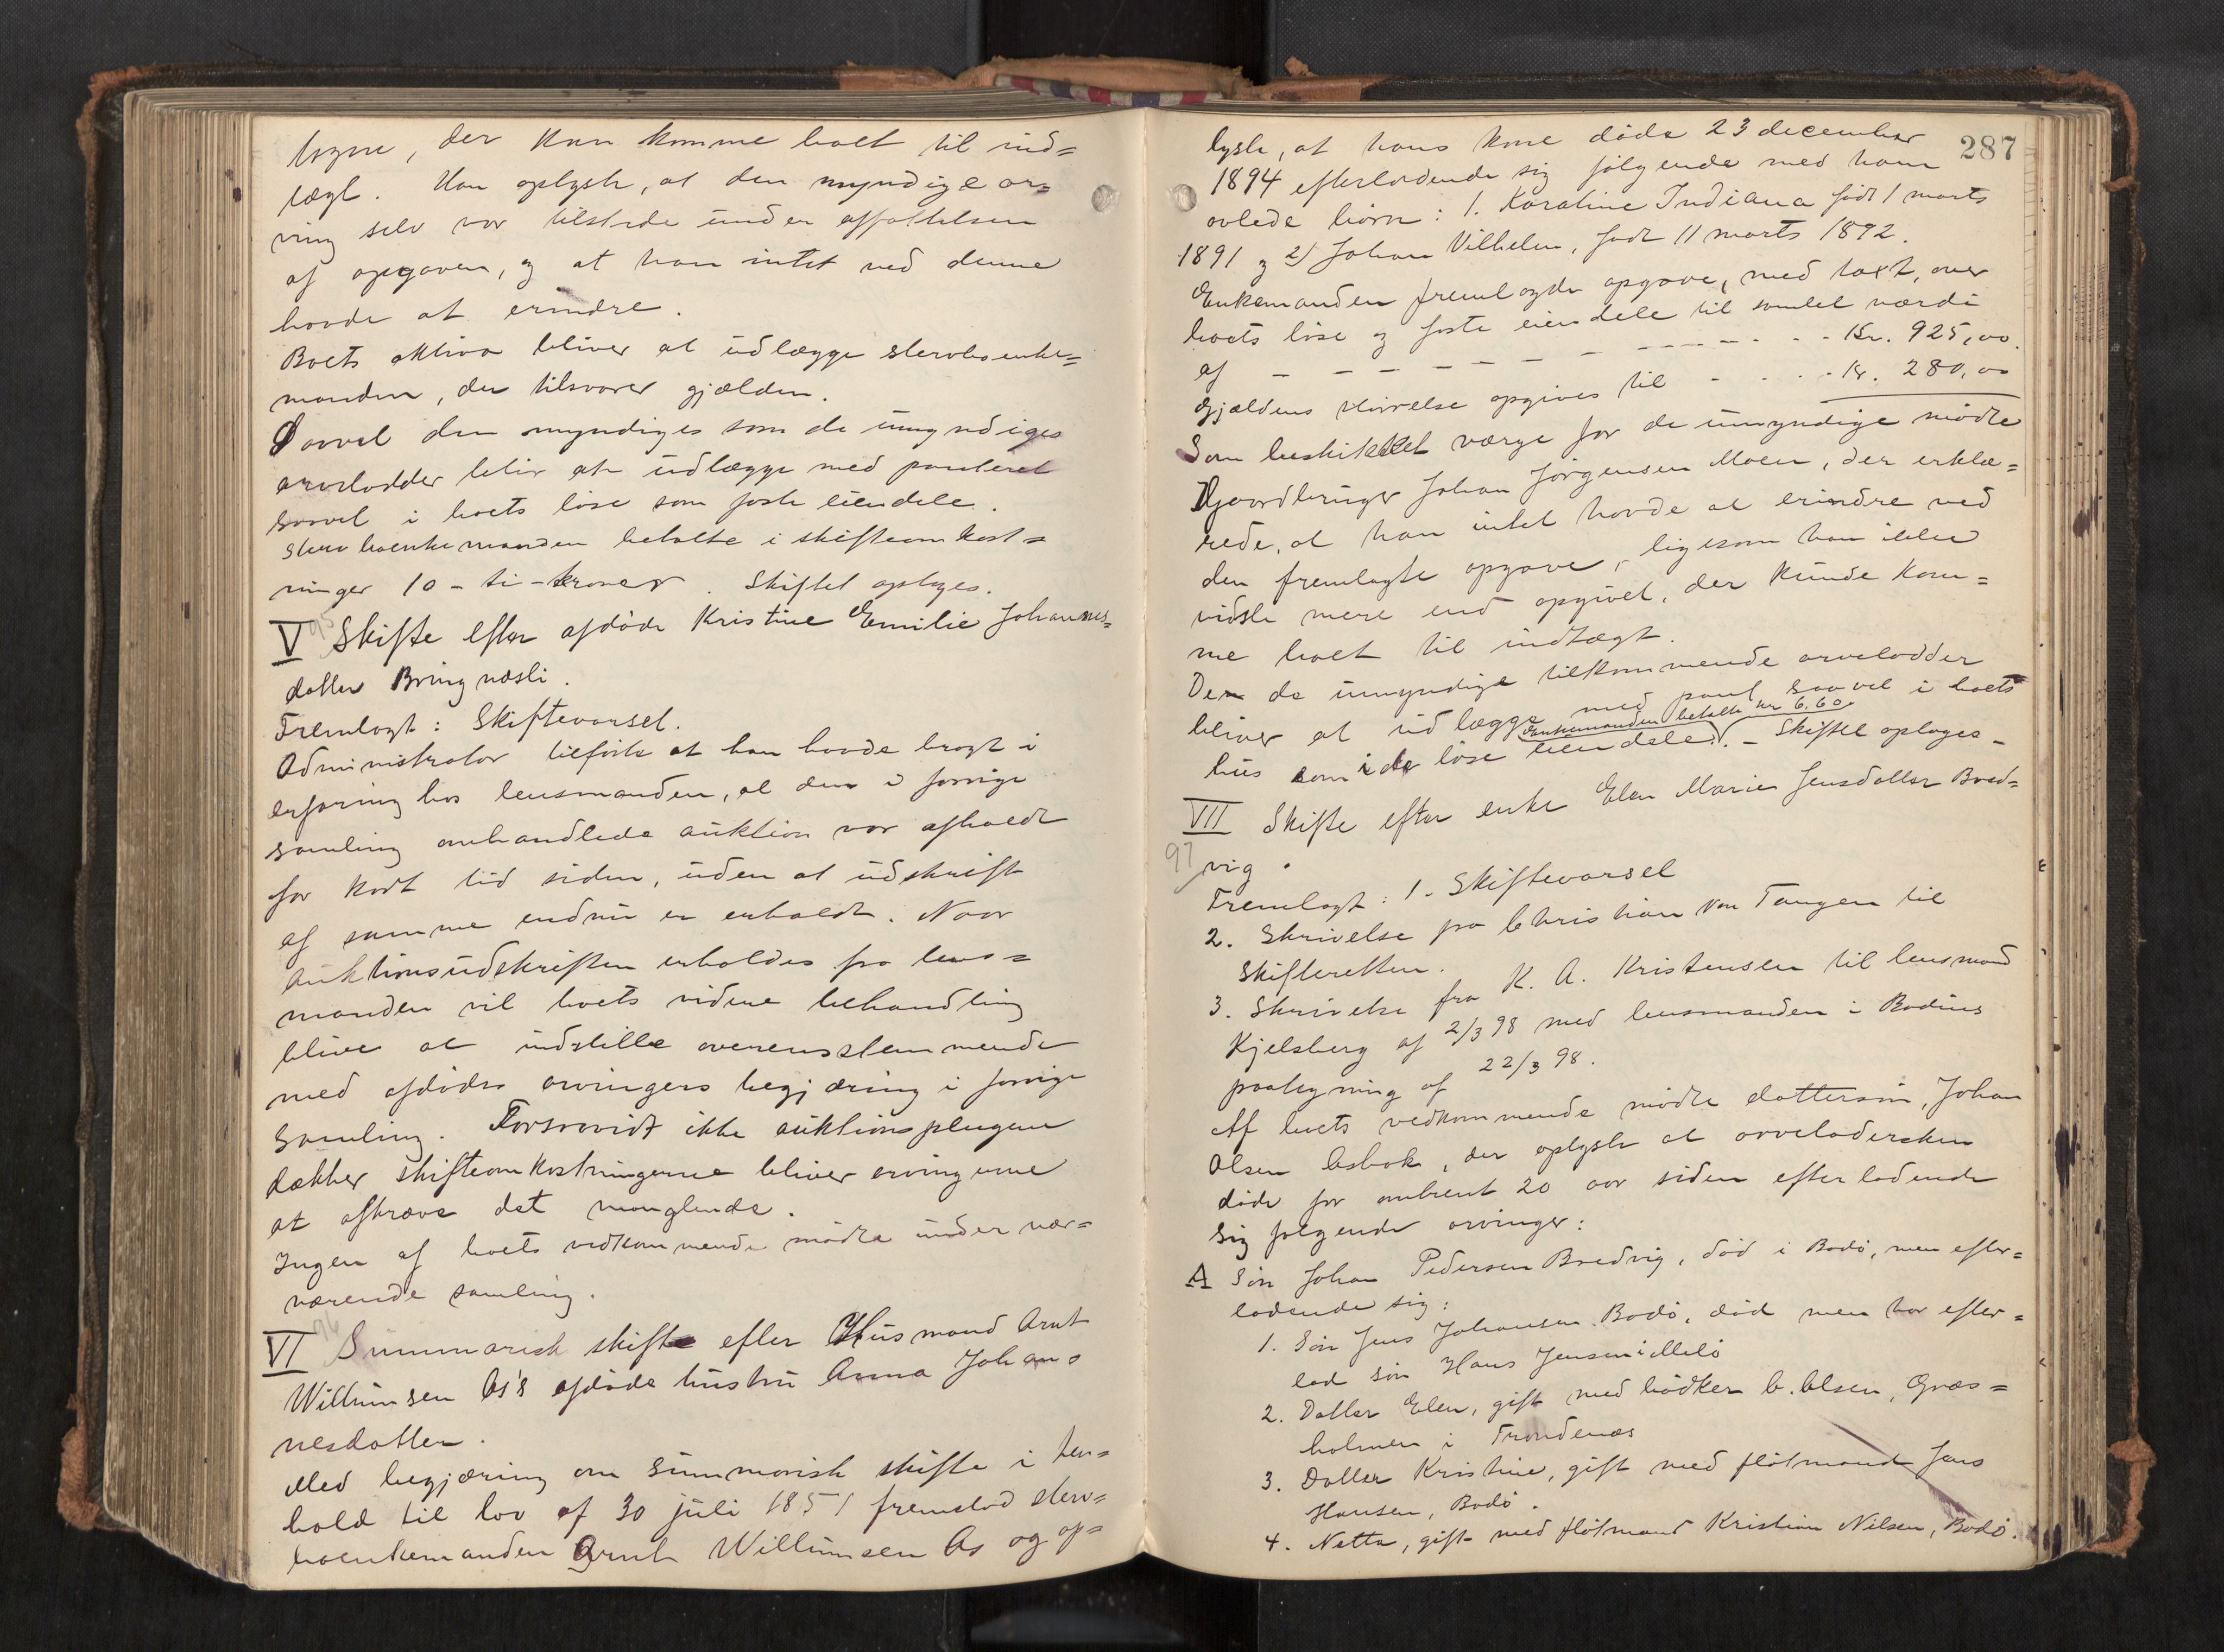 der kun komme boet til ind=
tægt. Han oplyste, at den myndige ar=
ving selv var tilstede under affattelsen
af opgaven, og at han intet ved denne
havde at erindre.
Boets aktiva bliver at udlægge stervboenke=
manden, der tilsvarer gjælden.
Saavel den myndiges som de umyndiges
arvelodder blir at udlægge med panteret
saavel i boets løse som faste eiendele.
Stervboenkemanden betalte i skifteomkost=
ninger 10 - ti - kroner. Skiftet sluttes.
V 95 Skifte efter afdøde Kristine Emilie Johannes=
datter Bringnæsli.
Fremlagt: Skiftevarsel.
Administrator tilførte at han havde bragt i
erfaring hos lensmanden, at den i forrige
samling omhandlede auktion var afholdt
for kort tid siden, uden at udskrift
af samme endnu er erholdt. Naar
auktionsudskriften erholdes fra lens=
manden vil boets videre behandling
blive at indstille overensstemmende
med afdødes arvingers begjæring i forrige
samling. Forsaavidt ikke auktionspengene
dækker skifteomkostningerne bliver arvingerne
at afkræve det manglende.
Ingen af boets vedkommende mødte under nær=
værende samling.
VI 96 Summarisk skifte efter Husmand Arnt
Willumsen As's afdøde hustru Anna Johan=
nesdatter.
Med begjæring om summarisk skifte i hen=
hold til lov af 30 juli 1851 fremstod sterv=
boenkemanden Arnt Willumsen As og op=
287
lyste, at hans kone døde 23 december
1894 efterladende sig følgende med ham
avlede børn: 1. Karoline Indiana født 1 marts
1891 og 2) Johan Vilhelm, født 11 marts 1892.
Enkemanden fremlagde opgave, med taxt, over
boets løse og faste eiendele til samlet værdi
af - - - - - - - - - - - Kr. 925,00.
Gjældens størrelse opgives til - . . . Kr. 280,00
Som beskikket værge for de umyndige mødte
Gaardbruger Johan Jørgensen Moen, der erklæ=
rede, at han intet havde at erindre ved
den fremlagte opgave, ligesom han ikke
vidste mere end opgivet, der kunde kom=
me boet til indtægt.
De de umyndige tilkommende arvelodder
bliver at udlægge med pant saavel i boets
hus som i de løse eiendele. (Enkemanden betalte kr 6.60). - Skiftet sluttes -
VII Skifte efter enke Elen Marie Jensdatter Bred=
97 vig.
Fremlagt: 1. Skiftevarsel
2. Skrivelse fra Christian von Tangen til
skifteretten.
3. Skrivelse fra K. A. Kristensen til lensmand
Kjelsberg af 2/3 98 med lensmanden i Bodins
paategning af 22/3 98.
Af boets vedkommende mødte dattersøn, Johan
Olsen Osbak, der oplyste at arveladersken
døde for omtrent 20 aar siden efterladende
sig følgende arvinger:
A Søn Johan Pedersen Bredvig, død i Bodø, men efter=
ladende sig:
1. Søn Jens Johansen Bodø, død men har efter=
lad søn Hans Jensen i Melø
2. Datter Elen, gift med bødker C. Olsen, Græs=
holmen i Trondenæs
3. Datter Kristine, gift med fløtmand Jens
Hansen, Bodø.
4. Netta, gift med fløtmand Kristian Nilsen, Bodø.